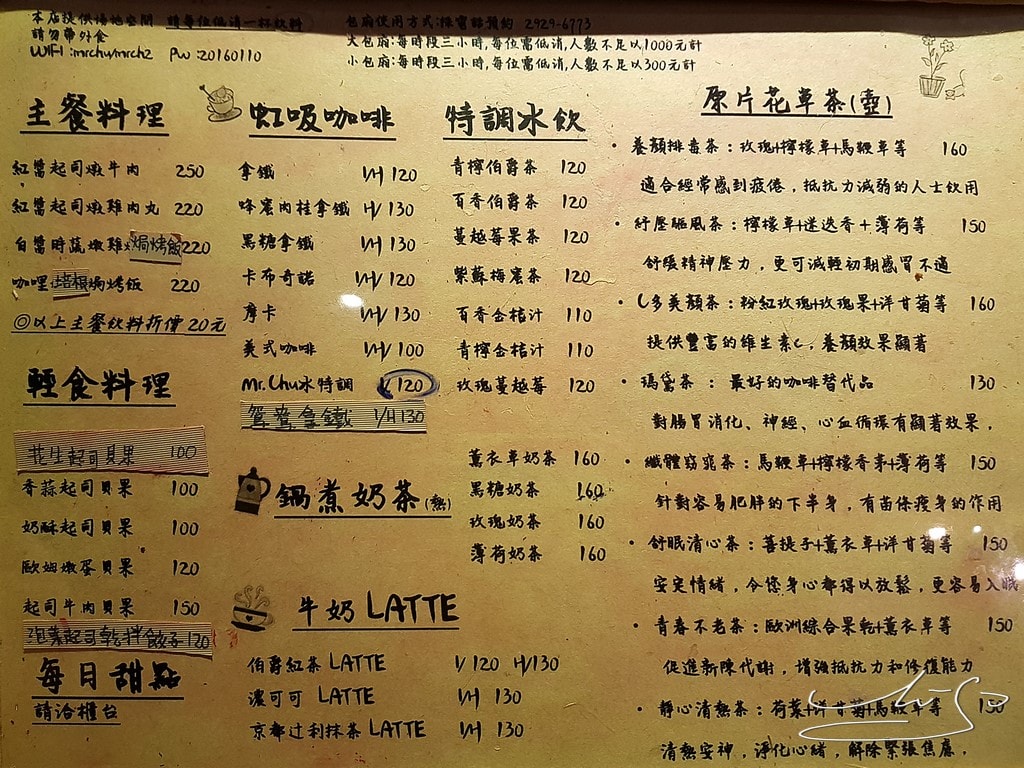 本店提供場地空間 請每位低消一杯飲料
請勿帶外食
WIFI:mrchu/mrch2 PW:20160110
包廂使用方式:採電話預約 2929-6773
大包廂:每時段三小時,每位需低消,人數不足以1000元計
小包廂:每時段三小時,每位需低消,人數不足以300元計
主餐料理
紅醬起司燉牛肉 250
紅醬起司燉雞肉丸 220
白醬時蔬燉雞焗烤飯 220
咖哩培根焗烤飯 220
◎以上主餐飲料折價20元
輕食料理
花生起司貝果 100
香蒜起司貝果 100
奶酥起司貝果 100
歐姆嫩蛋貝果 120
起司牛肉貝果 150
泡菜起司乾拌餃子 120
每日甜點
請洽櫃台
虹吸咖啡
拿鐵 I/H 120
蜂蜜肉桂拿鐵 H/130
黑糖拿鐵 I/H 130
卡布奇諾 I/H 120
摩卡 I/H 130
美式咖啡 I/H 100
Mr.Chu冰特調 I/120
鴛鴦拿鐵 I/H 130
鍋煮奶茶(熱)
薰衣草奶茶 160
黑糖奶茶 160
玫瑰奶茶 160
薄荷奶茶 160
牛奶LATTE
伯爵紅茶LATTE I/120 H/130
濃可可 LATTE I/H 130
京都辻利抹茶LATTE I/H 130
特調冰飲
青檸伯爵茶 120
百香伯爵茶 120
蔓越莓果茶 120
紫蘇梅蜜茶 120
百香金桔汁 110
青檸金桔汁 110
玫瑰蔓越莓 120
原片花草茶(壺)
• 養顏排毒茶:玫瑰+檸檬草+馬鞭草等 160
適合經常感到疲倦,抵抗力減弱的人士飲用
• 紓壓驅風茶:檸檬草+迷迭香+薄荷等 150
舒緩精神壓力,更可減輕初期感冒不適
• C多美顏茶:粉紅玫瑰+玫瑰果+洋甘菊等 160
提供豐富的維生素C,養顏效果顯著
• 瑪黛茶:最好的咖啡替代品 130
對腸胃消化、神經、心血循環有顯著效果,
• 纖體窈窕茶:馬鞭草+檸檬香茅+薄荷等 150
針對容易肥胖的下半身,有苗條瘦身的作用
• 舒眠清心茶:菩提子+薰衣草+洋甘菊等 150
安定情緒,令您身心都得以放鬆,更容易入眠
• 青春不老茶:歐洲綜合果乾+薰衣草等 150
促進新陳代謝,增強抵抗力和修復能力
• 靜心清熱茶:荷葉+洋甘菊+馬鞭草等 150
清熱安神,淨化心緒,解除緊張焦慮,